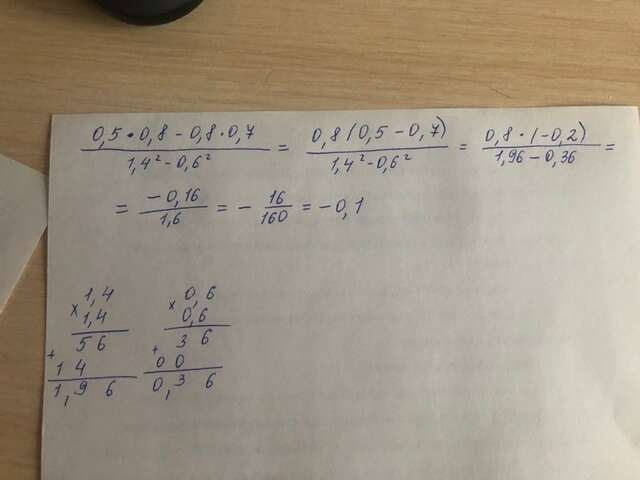 (0,5 · 0,8 - 0,8 · 0,7)/(1,4² - 0,6²) = (0,8(0,5 - 0,7))/(1,4² - 0,6²) = (0,8 · (-0,2))/(1,96 - 0,36) =
= (-0,16)/(1,6) = - 16/160 = -0,1
1,4 0,6
× 1,4 × 0,6
5 6 3 6
+ 1 4 + 0 0
1,9 6 0,3 6